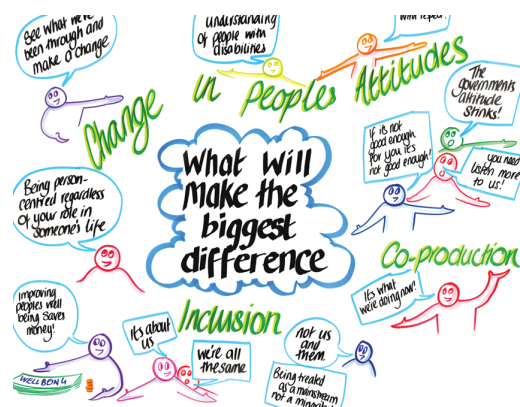 See what we've
been through and
make a change
understanding
of people with
disabilities
with respect!
Change
in Peoples Attitudes
The
governments
attitude
stinks!
If its not
good enough
for you it's
not good enough!
you need
listen more
to us!
What Will
make the
biggest
difference
Being person-
centred regardless
of your role in
someone's life
Co-production
It's what
we're doing now!
Improving
peoples well
being saves
money!
WELLBEING
Inclusion
It's about
us
we're all
the same
not us
and
them.
Being treated
as a mainstream
not a minority